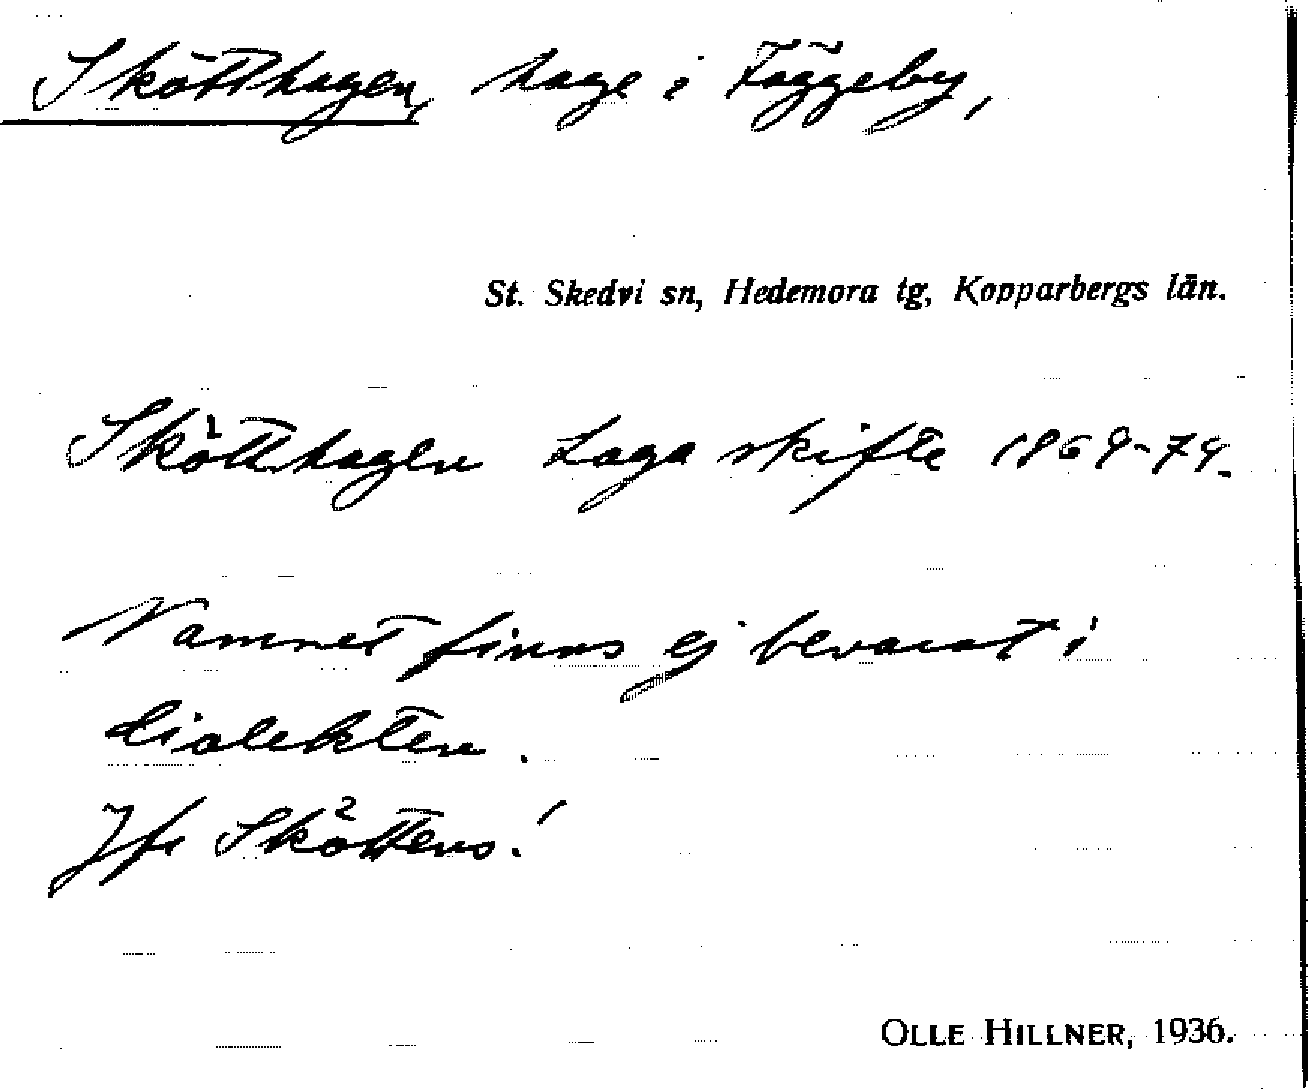 Skötthagen, hage i Fäggeby,
St. Skedvi sn, Hedemora tg, Kopparbergs län.
Skötthagen Laga skifte 1869-74.
Namnet finns ej bevarat i
dialekten.
Jfr Sköttens!
OLLE HILLNER, 1936.